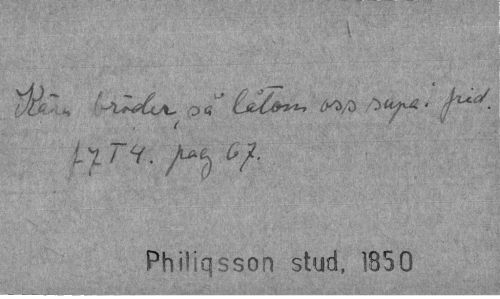 Kära bröder, så låtom oss supa i frid.
f 7 T 4. pag 67.
Philiqsson stud, 1850